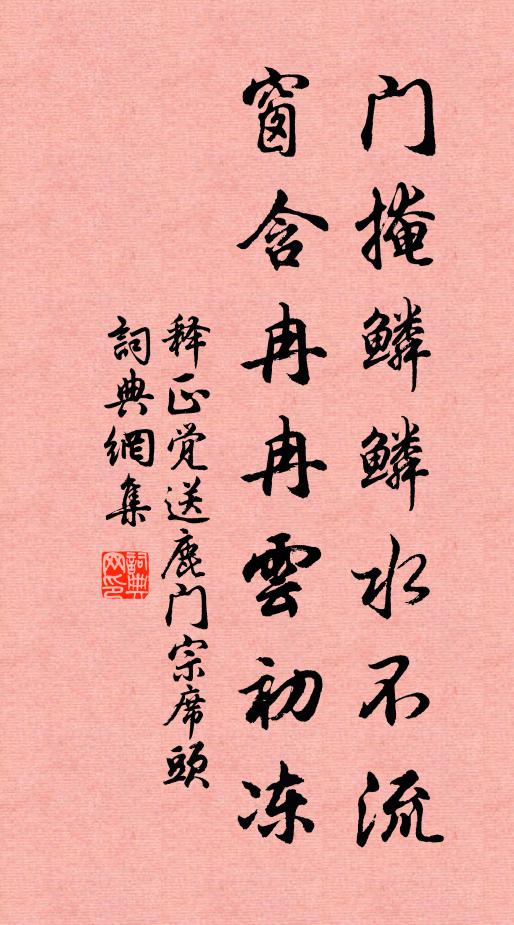 门掩鳞鳞水不流
窗含冉冉雲初冻
释正觉送鹿门宗席頭
詞典網集
詞典网印